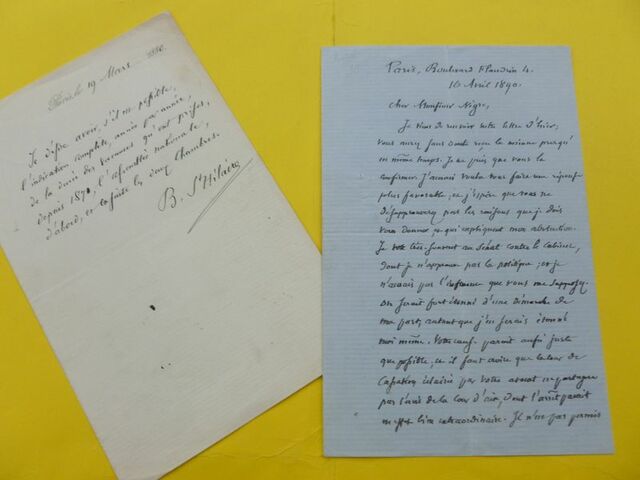 Paris, le 19 Mars 1880.
Je désire avoir, s'il est possible,
l'indication complète, année par année,
de la durée des vacances qu'ont prises,
depuis 1870, l'assemblée nationale,
d'abord, et ensuite les deux Chambres.
B. St Hilaire
Paris, Boulevard Flandrin 4.
16 Avril 1890.
Cher Monsieur Nigre,
Je viens de recevoir votre lettre d'hier,
vous aurez sans doute reçu la mienne presqu'
en même temps. Je ne puis que vous la
confirmer. J'aurais voulu vous faire une réponse
plus favorable, et j'espère que vous ne
désapprouverez pas les raisons que je dois
vous donner, et qui expliquent mon abstention.
Je vote très-souvent au Sénat contre le cabinet,
dont je n'approuve pas la politique; et je
n'aurais pas l'influence que vous me supposez.
On serait fort étonné d'une démarche de
ma part, autant que j'en serais étonné
moi même. Votre cause paraît aussi juste
que possible, et il faut croire que la Cour de
Cassation éclairée par votre avocat ne partagera
pas l'avis de la Cour d'Aix, dont l'arrêt paraît
en effet bien extraordinaire. Il n'est pas permis